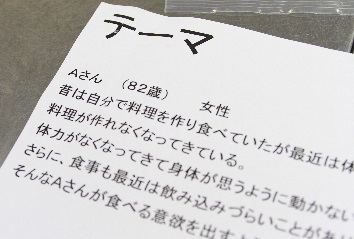 テーマ
Aさん （82歳） 女性
昔は自分で料理を作り食べていたが最近は体
料理が作れなくなってきている。
体力がなくなってきて身体が思うように動かない
さらに、食事も最近は飲み込みづらいことがあり
そんなAさんが食べる意欲を出すよ